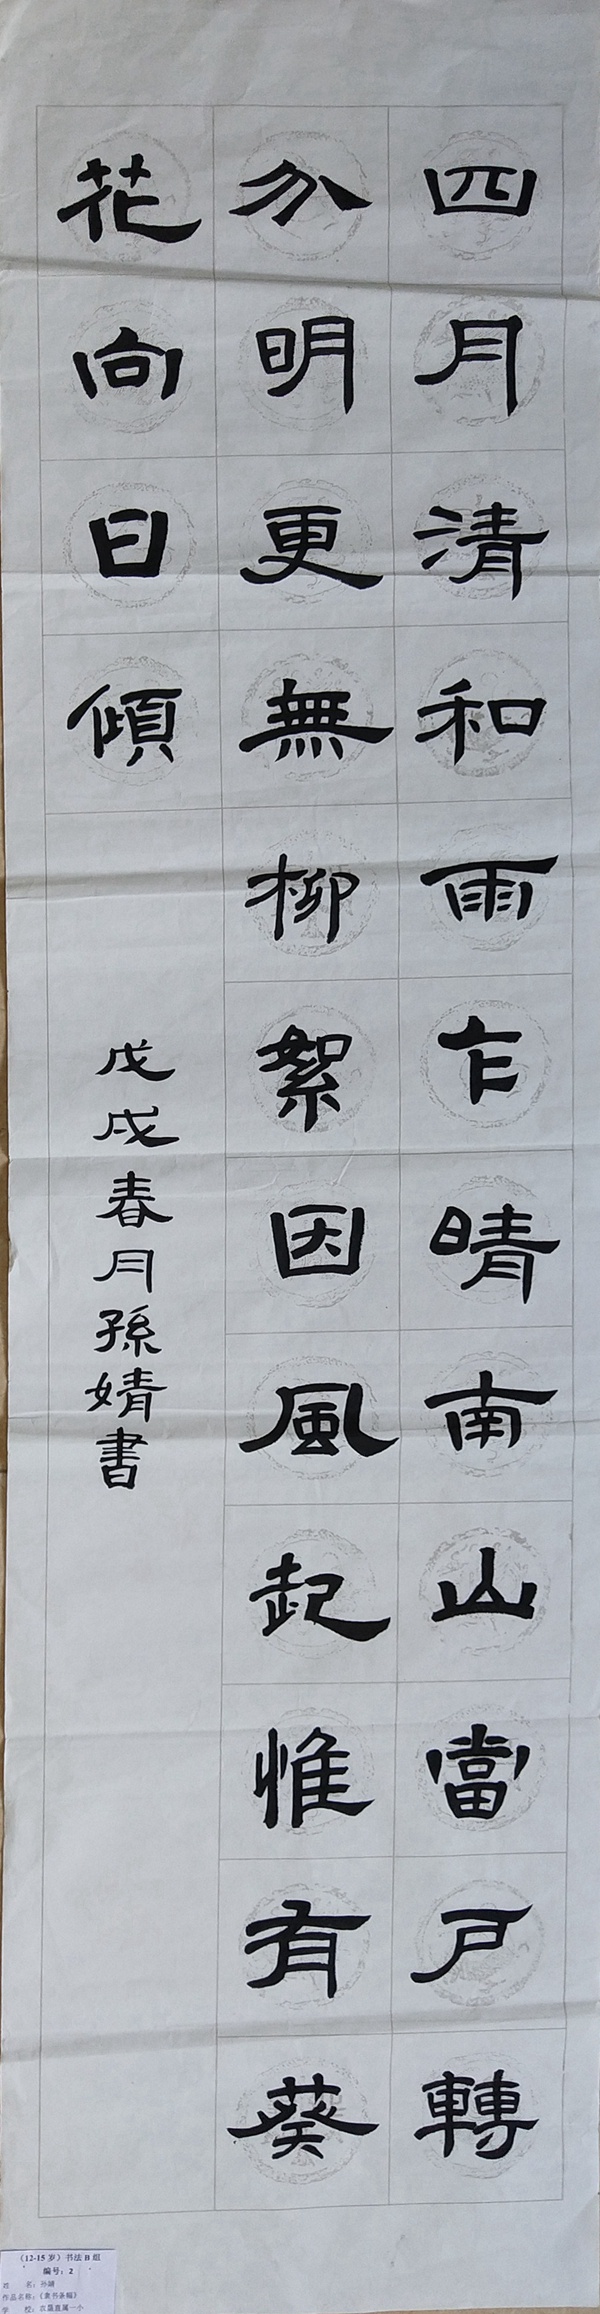 四月清和雨乍晴南山當戶轉
分明更無柳絮因風起惟有葵
花向日傾
戊戌春月孫婧書
（12-15岁）书法B组
编号：2
姓 名：孙婧
作品名称：《隶书条幅》
学 校：农垦直属一小